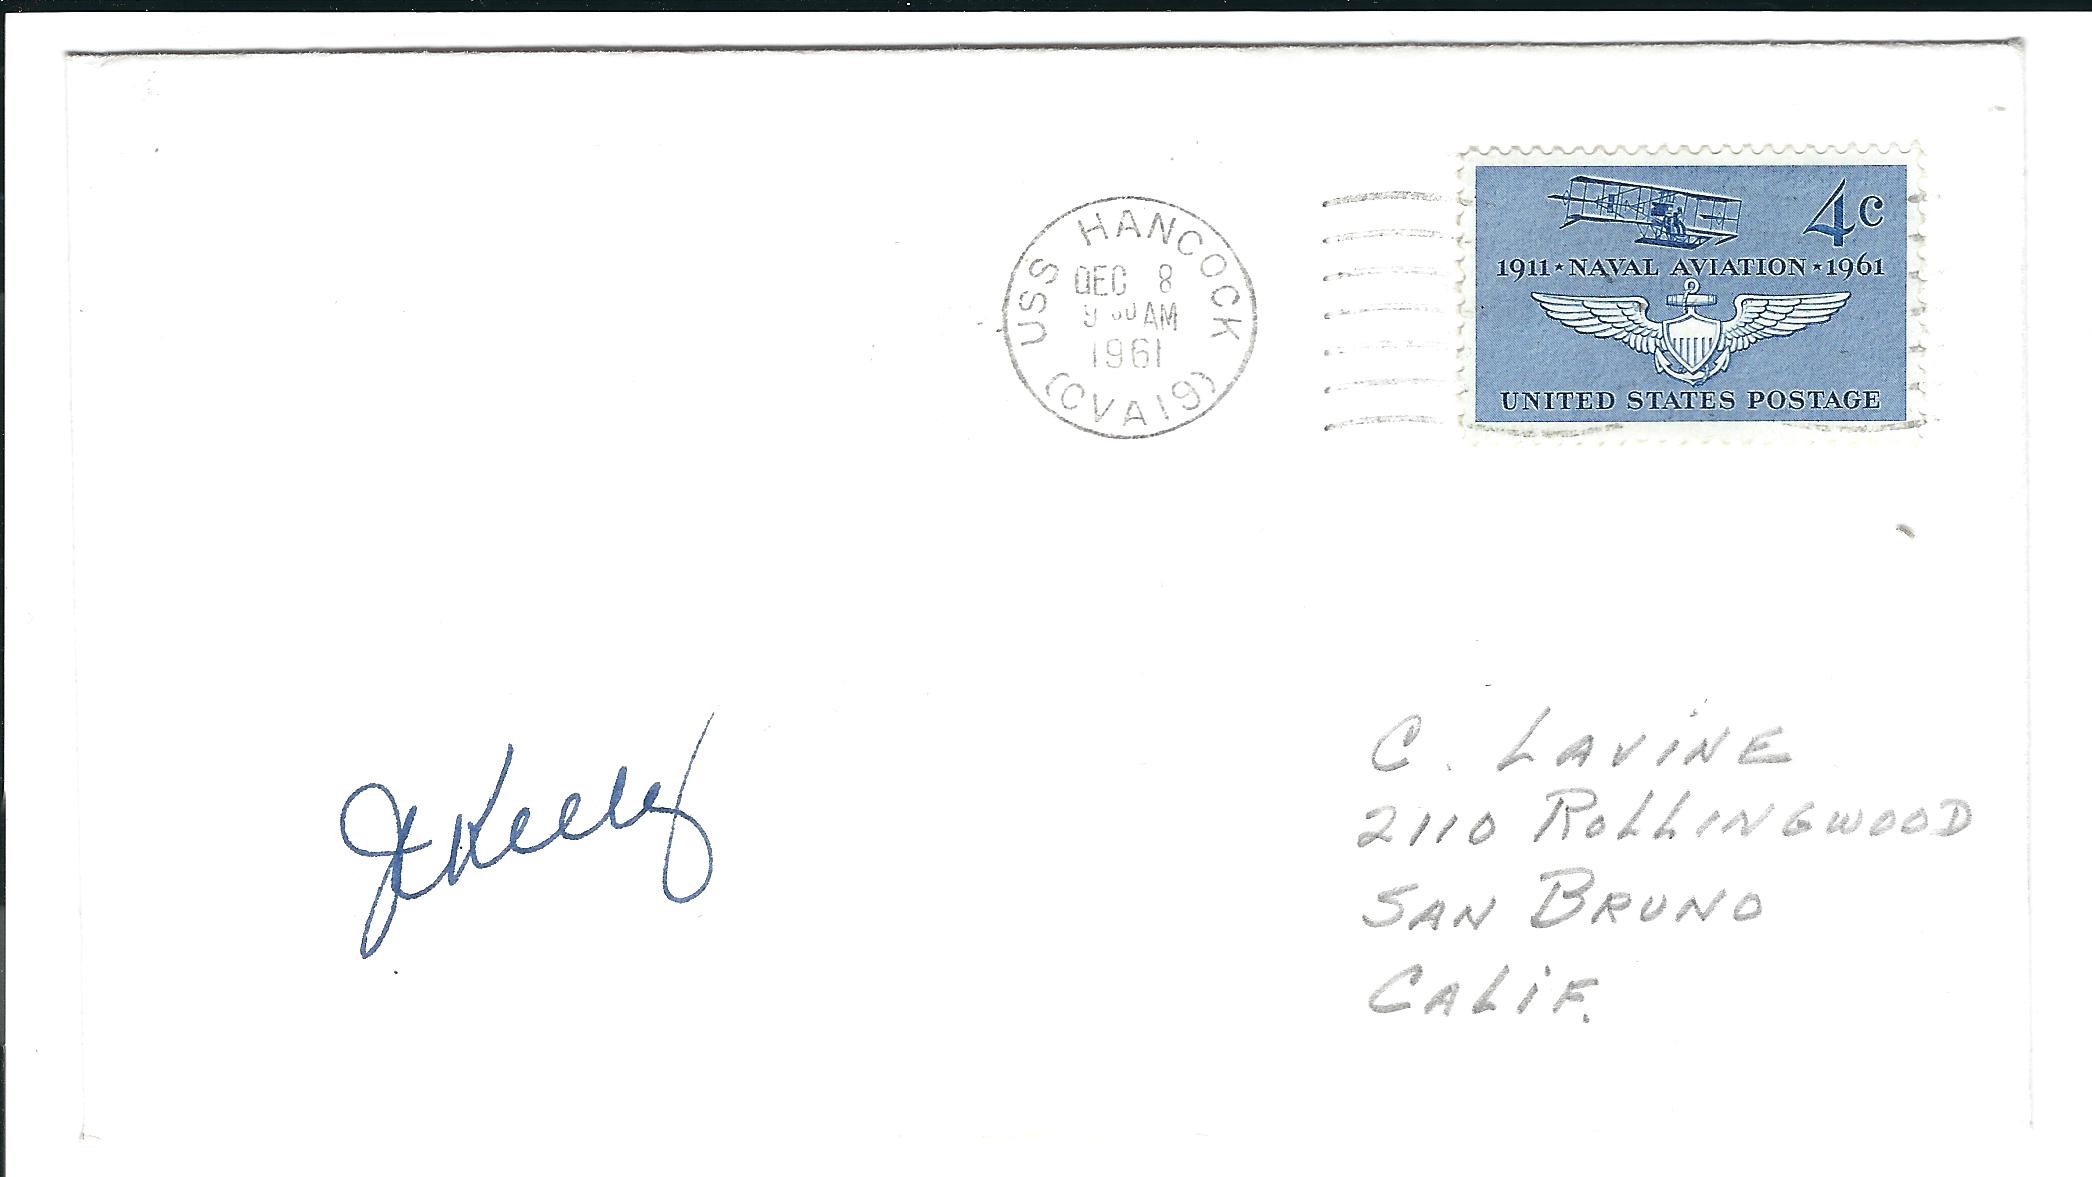 USS HANCOCK
DEC 8
AM
1961
(CVA19)
4c
1911★NAVAL AVIATION★1961
UNITED STATES POSTAGE
C. LAVINE
2110 ROLLINGWOOD
SAN BRUNO
CALIF.